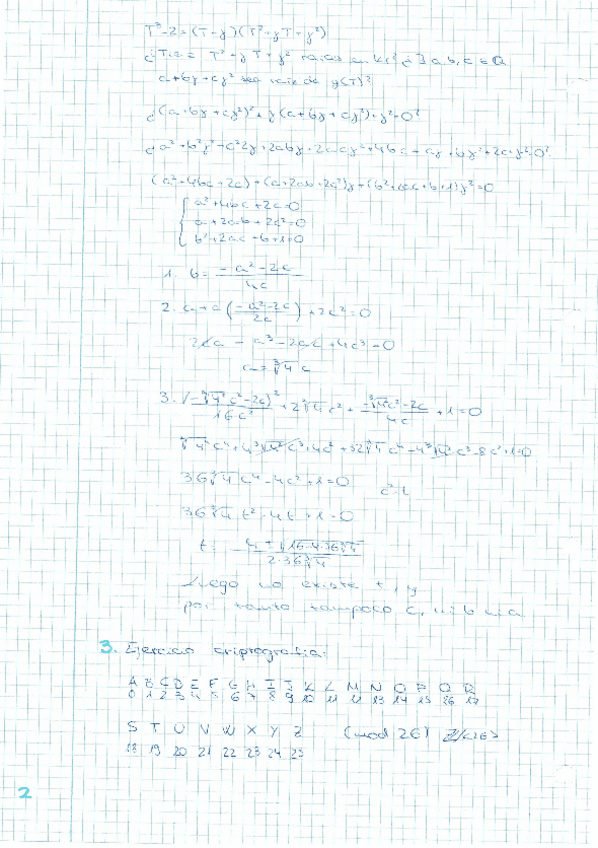 T³-2=(T-y)(T²+yT+y²)
T²+yT+y² raíces en K? ¿∃ a,b,c ∈ Q
a+by+cy² sea raíz de g(T)?
¿(a+by+cy²)²+y(a+by+cy²)+y²=0?
¿a²+b²y²+c²2y+2aby+2acy²+4bc+ay+by²+2c+y²=0?
(a²+4bc+2c)+(a+2ab+2c²)y+(b²+2ac+b+1)y²=0
a²+4bc+2c=0
a+2ab+2c²=0
b²+2ac+b+1=0
1. b = (-a²-2c)/4c
2. a+a((-a²-2c)/2c)+2c²=0
2ca-a³-2ac+4c³=0
a=∛4 c
3. (-∛4²c²-2c)²/16c²+2∛4c²+(-∛4²c²-2c)/4c+1=0
36∛4c⁴-4c²+1=0
c²=t
36∛4t²-4t+1=0
t= 4±√16-4·36∛4 / 2·36∛4
Luego no existe t, y
por tanto tampoco c, ni b ni a
3. Ejercicio criptografía:
A B C D E F G H I J K L M N O P Q R
0 1 2 3 4 5 6 7 8 9 10 11 12 13 14 15 16 17
S T U V W X Y Z (mod 26) Z/<26>
18 19 20 21 22 23 24 25
2